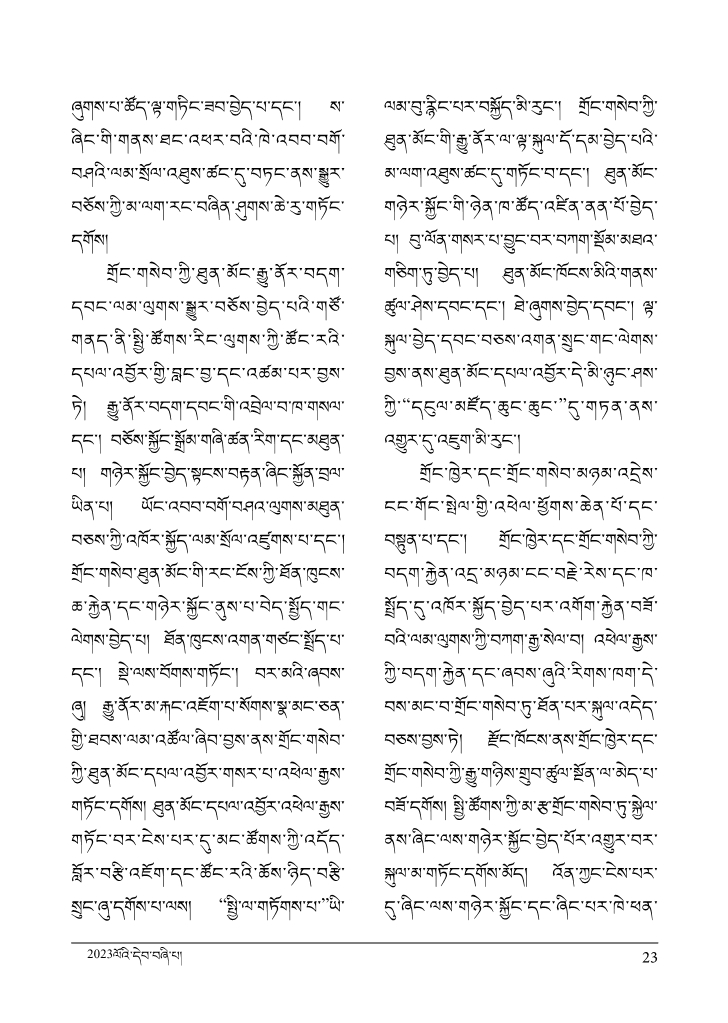 ཞུགས་པ་ཚོད་ལྟ་གཏིང་ཟབ་བྱེད་པ་དང་། ས་
ཞིང་གི་གནས་ཐང་འཕར་བའི་ཁེ་འབབ་བགོ་
བཤའི་ལམ་སྲོལ་འཐུས་ཚང་དུ་བཏང་ནས་སྒྱུར་
བཅོས་ཀྱི་མ་ལག་རང་བཞིན་ཤུགས་ཆེ་རུ་གཏོང་
དགོས།
གྲོང་གསེབ་ཀྱི་ཐུན་མོང་རྒྱུ་ནོར་བདག་
དབང་ལམ་ལུགས་སྒྱུར་བཅོས་བྱེད་པའི་གཙོ་
གནད་ནི་སྤྱི་ཚོགས་རིང་ལུགས་ཀྱི་ཚོང་རའི་
དཔལ་འབྱོར་གྱི་བླང་བྱ་དང་འཚམ་པར་བྱས་
ཏེ། རྒྱུ་ནོར་བདག་དབང་གི་འབྲེལ་བ་ཁ་གསལ་
དང་། བཅོས་སྐྱོང་སྒྲོམ་གཞི་ཚན་རིག་དང་མཐུན་
པ། གཉེར་སྐྱོང་བྱེད་སྟངས་བརྟན་ཞིང་སྐྱོན་བྲལ་
ཡིན་པ། ཡོང་འབབ་བགོ་བཤའ་ལུགས་མཐུན་
བཅས་ཀྱི་འཁོར་སྐྱོད་ལམ་སྲོལ་འཛུགས་པ་དང་།
གྲོང་གསེབ་ཐུན་མོང་གི་རང་ངོས་ཀྱི་ཐོན་ཁུངས་
ཆ་རྐྱེན་དང་གཉེར་སྐྱོང་ནུས་པ་བེད་སྤྱོད་གང་
ལེགས་བྱེད་པ། ཐོན་ཁུངས་འགན་གཙང་སྤྲོད་པ་
དང་། སྡེ་ལས་བོགས་གཏོང་། བར་མའི་ཞབས་
ཞུ། རྒྱུ་ནོར་མ་རྐང་འཇོག་པ་སོགས་སྣ་མང་ཅན་
གྱི་ཐབས་ལམ་འཚོལ་ཞིབ་བྱས་ནས་གྲོང་གསེབ་
ཀྱི་ཐུན་མོང་དཔལ་འབྱོར་གསར་པ་འཕེལ་རྒྱས་
གཏོང་དགོས། ཐུན་མོང་དཔལ་འབྱོར་འཕེལ་རྒྱས་
གཏོང་བར་ངེས་པར་དུ་མང་ཚོགས་ཀྱི་འདོད་
བློར་བརྩི་འཇོག་དང་ཚོང་རའི་ཆོས་ཉིད་བརྩི་
སྲུང་ཞུ་དགོས་པ་ལས། “སྤྱི་ལ་གཏོགས་པ་”ཡི་
ལམ་བུ་རྙིང་པར་བསྐྱོད་མི་རུང་། གྲོང་གསེབ་ཀྱི་
ཐུན་མོང་གི་རྒྱུ་ནོར་ལ་ལྟ་སྐུལ་དོ་དམ་བྱེད་པའི་
མ་ལག་འཐུས་ཚང་དུ་གཏོང་བ་དང་། ཐུན་མོང་
གཉེར་སྐྱོང་གི་ཉེན་ཁ་ཚོད་འཛིན་ནན་པོ་བྱེད་
པ། བུ་ལོན་གསར་པ་བྱུང་བར་བཀག་སྡོམ་མཐའ་
གཅིག་ཏུ་བྱེད་པ། ཐུན་མོང་ཁོངས་མིའི་གནས་
ཚུལ་ཤེས་དབང་དང་། ཐེ་ཞུགས་བྱེད་དབང་། ལྟ་
སྐུལ་བྱེད་དབང་བཅས་འགན་སྲུང་གང་ལེགས་
བྱས་ནས་ཐུན་མོང་དཔལ་འབྱོར་དེ་མི་ཉུང་ཤས་
ཀྱི་“དངུལ་མཛོད་ཆུང་ཆུང་”དུ་གཏན་ནས་
འགྱུར་དུ་འཇུག་མི་རུང་།
གྲོང་ཁྱེར་དང་གྲོང་གསེབ་མཉམ་འདྲེས་
ངང་གོང་སྤེལ་གྱི་འཕེལ་ཕྱོགས་ཆེན་པོ་དང་
བསྟུན་པ་དང་། གྲོང་ཁྱེར་དང་གྲོང་གསེབ་ཀྱི་
བདག་རྐྱེན་འདྲ་མཉམ་ངང་བརྗེ་རེས་དང་ཁ་
སྤྲོད་དུ་འཁོར་སྐྱོད་བྱེད་པར་འགོག་རྐྱེན་བཟོ་
བའི་ལམ་ལུགས་ཀྱི་བཀག་རྒྱ་སེལ་བ། འཕེལ་རྒྱས་
ཀྱི་བདག་རྐྱེན་དང་ཞབས་ཞུའི་རིགས་ཁག་དེ་
བས་མང་བ་གྲོང་གསེབ་ཏུ་ཐོན་པར་སྐུལ་འདེད་
བཅས་བྱས་ཏེ། རྫོང་ཁོངས་ནས་གྲོང་ཁྱེར་དང་
གྲོང་གསེབ་ཀྱི་རྒྱུ་གཉིས་གྲུབ་ཚུལ་སྔོན་ལ་མེད་པ་
བཟོ་དགོས། སྤྱི་ཚོགས་ཀྱི་མ་རྩ་གྲོང་གསེབ་ཏུ་སྐྱེལ་
ནས་ཞིང་ལས་གཉེར་སྐྱོང་བྱེད་པོར་འགྱུར་བར་
སྐུལ་མ་གཏོང་དགོས་མོད། འོན་ཀྱང་ངེས་པར་
དུ་ཞིང་ལས་གཉེར་སྐྱོང་དང་ཞིང་པར་ཁེ་ཕན་
2023ལོའི་དེབ་བཞི་པ།
23